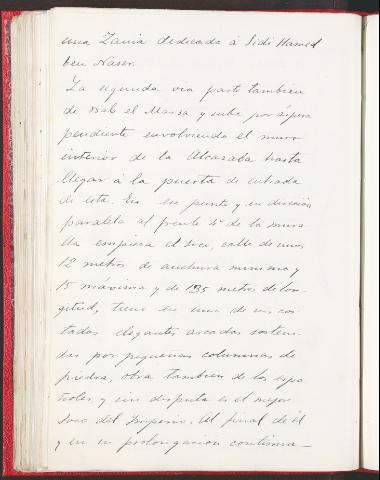 una Zauia dedicada á Sidi Hamed
ben Naser.
La segunda via parte tambien
de Bab el Marsa y sube por áspera
pendiente envolviendo el muro
interior de la Alcazaba hasta
llegar á la puerta de entrada
de esta. En ese punto y en direccion
paralela al frente 4º de la mura
lla empieza el soco, calle de unos
12 metros de anchura minima y
15 maxima y de 195 metros de lon-
gitud, tiene en uno de sus cos-
tados elegantes arcadas sosteni-
das por pequeñas columnas de
piedra, obra tambien de los espa
ñoles, y sin disputa es el mejor
soco del Imperio. Al final de él
y en su prolongacion continua-